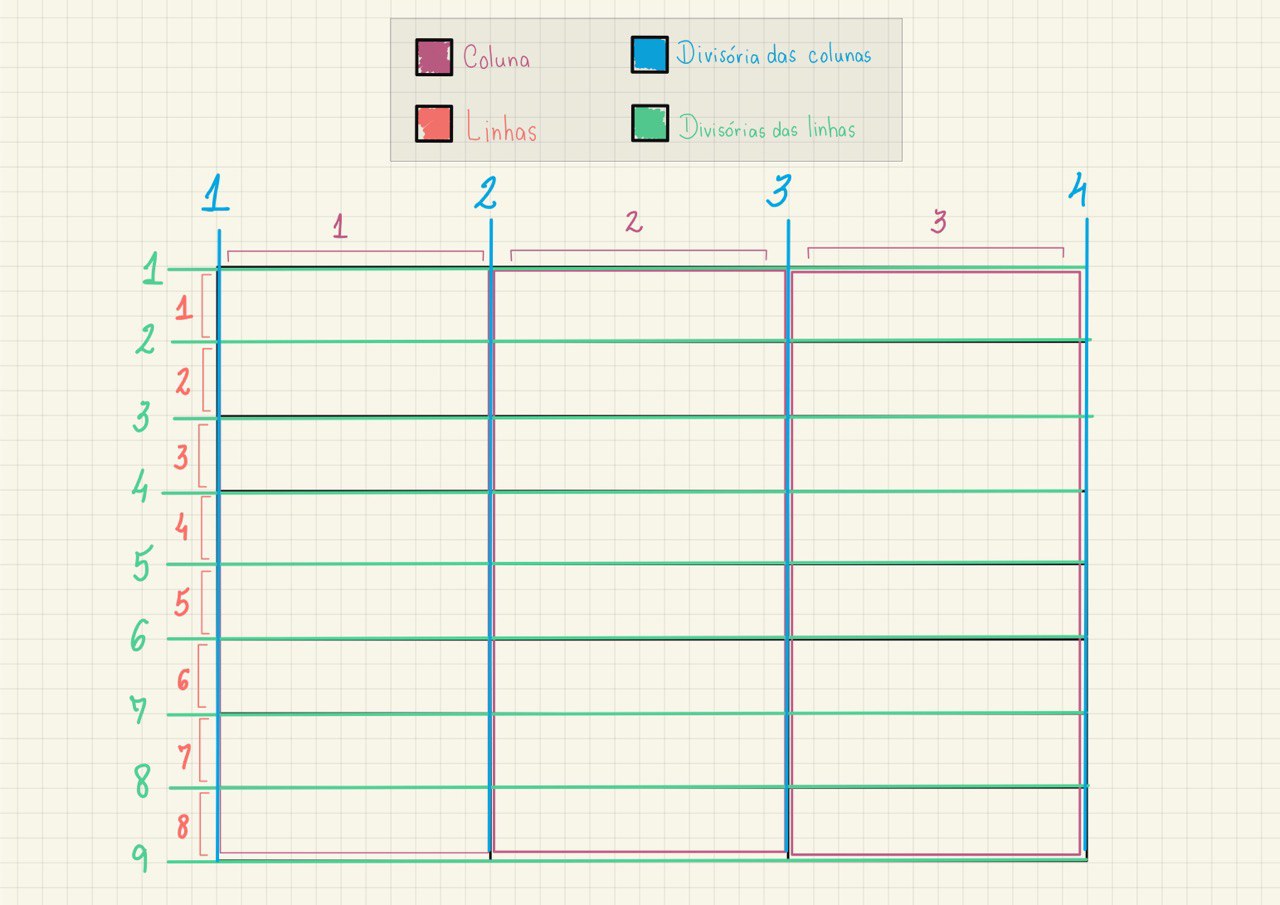 Coluna
Divisória das colunas
Linhas
Divisórias das linhas
1 2 3 4
1 2 3
1
1
2
2
3
3
4
4
5
5
6
6
7
7
8
8
9